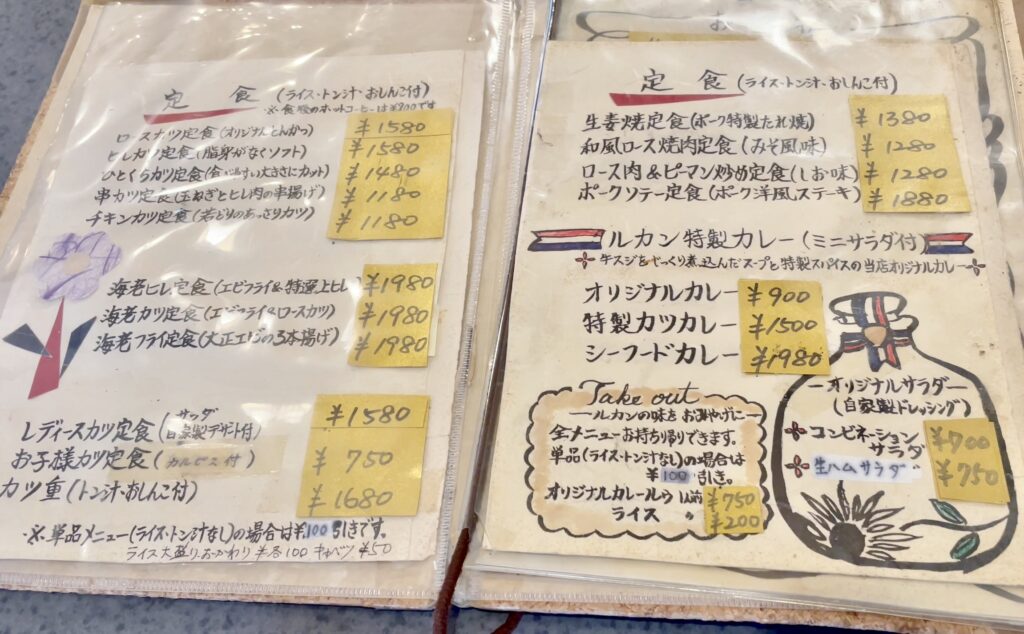 定食 (ライス・トン汁・おしんこ付)
※食後のホットコーヒーは¥200です
ロースカツ定食 (オリジナルとんかつ) ¥1580
ヒレカツ定食 (脂身がなくソフト) ¥1580
ひとくちカツ定食 (食べやすい大きさにカット) ¥1480
串カツ定食 (玉ねぎとヒレ肉の串揚げ) ¥1180
チキンカツ定食 (若どりのあっさりカツ) ¥1180
海老ヒレ定食 (エビフライ&特選上ヒレ) ¥1980
海老カツ定食 (エビフライ&ロースカツ) ¥1980
海老フライ定食 (大正エビの3本揚げ) ¥1980
レディースカツ定食 (サラダ 自家製デザート付) ¥1580
お子様カツ定食 (カルピス付) ¥750
カツ重 (トン汁・おしんこ付) ¥1680
※単品メニュー(ライス・トン汁なし)の場合は¥100引きです。
ライス大盛り・おかわり ¥各100 キャベツ ¥50
定食 (ライス・トン汁・おしんこ付)
生姜焼定食 (ポーク特製たれ焼) ¥1380
和風ロース焼肉定食 (みそ風味) ¥1280
ロース肉&ピーマン炒め定食 (しお味) ¥1280
ポークソテー定食 (ポーク洋風ステーキ) ¥1880
ルカン特製カレー (ミニサラダ付)
牛スジをじっくり煮込んだスープと特製スパイスの当店オリジナルカレー
オリジナルカレー ¥900
特製カツカレー ¥1500
シーフードカレー ¥1980
Take out
ールカンの味をお土産にー
全メニューお持ち帰りできます。
単品(ライス・トン汁なし)の場合は
¥100引き。
オリジナルカレールウ 1人前 ¥750
ライス 〃 ¥200
ーオリジナルサラダー
(自家製ドレッシング)
コンビネーション
サラダ ¥700
生ハムサラダ ¥750